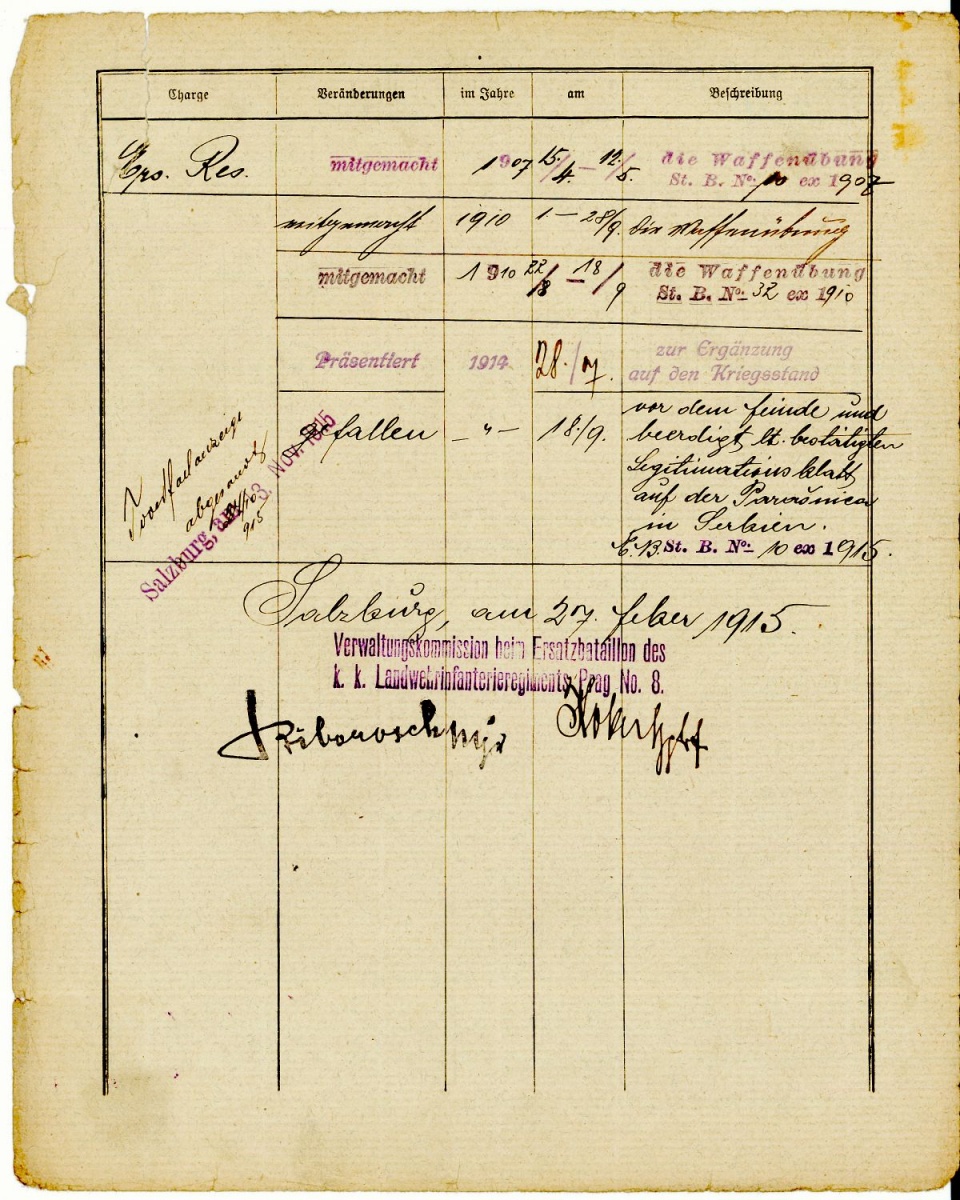 Charge Veränderungen im Jahre am Beschreibung
Ers. Res. mitgemacht 1907 15./4. – 12./5. die Waffenübung
St. B. No. 10 ex 1907
mitgemacht 1910 1. – 28/9. die Waffenübung
mitgemacht 1910 22/8 – 18/9 die Waffenübung
St. B. No. 32 ex 1910
Präsentiert 1914 28./7. zur Ergänzung
auf den Kriegsstand
gefallen – " – 18/9. vor dem Feinde und
beerdigt lt. bestätigten
Legitimationsblatt
auf der Parašnica
in Serbien.
St. B. No. 10 ex 1915.
Todesfallanzeige
abgesandt
915
Salzburg, am 3. Nov. 1915
Salzburg, am 27. feber 1915.
Verwaltungskommission beim Ersatzbataillon des
k. k. Landwehrinfanterieregiments Prag No. 8.